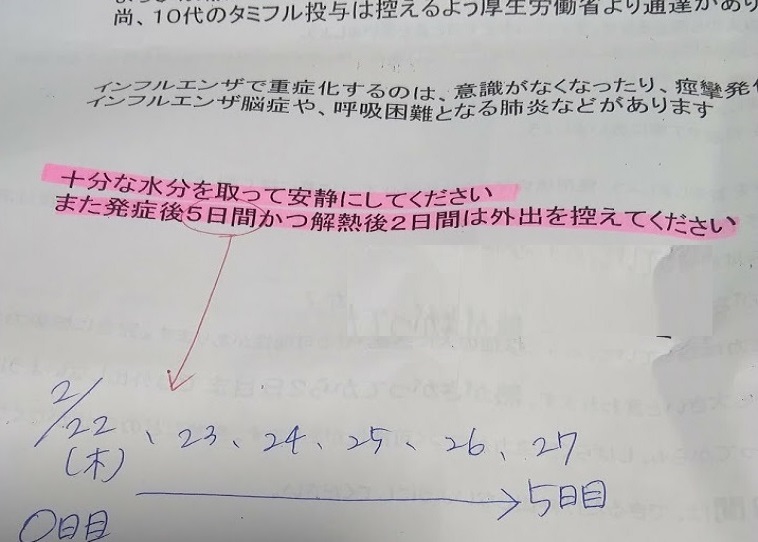 尚、10代のタミフル投与は控えるよう厚生労働省より通達があり
インフルエンザで重症化するのは、意識がなくなったり、痙攣発作
インフルエンザ脳症や、呼吸困難となる肺炎などがあります
十分な水分を取って安静にしてください
また発症後5日間かつ解熱後2日間は外出を控えてください
2/22、23、24、25、26、27
(木)
→5日目
0日目